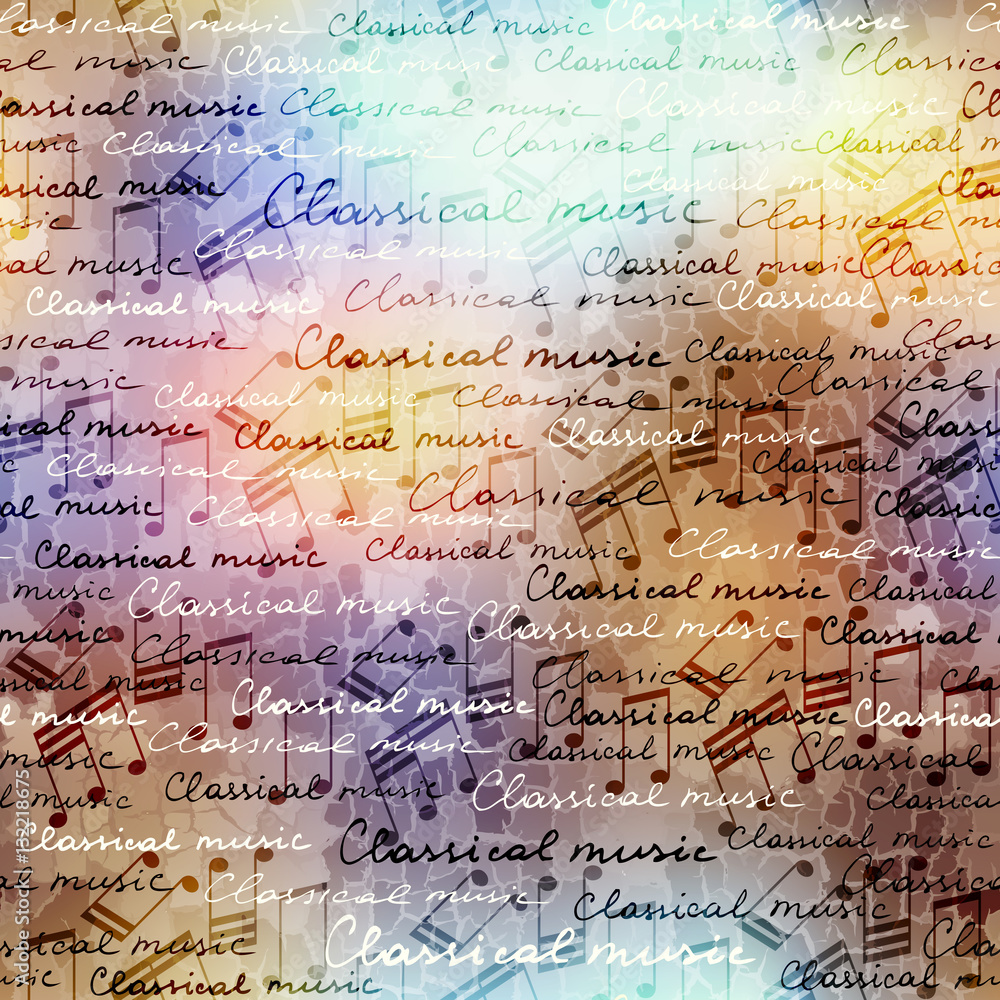 Classical music Classical music Classical music C
al music Classical music Classical music Classical
lassical music Classical music Classical music C
music Classical music Classical music Classical m
ssical music Classical music Classical
music Classical music Classical music
Classical music
cal music Classical music Classical
Classical music Classical music Classical music
ssical music Classical music Classical music Class
music Classical music Classical music Classical
ical music Classical music Classical music Classical
c Classical music Classical music Classical music
al music Classical music Classical
Classical music Classical music Classical music
music Classical music Classical music Classical
music Classical music Classical music Classical
ssical music Classical music Cla
l music Classical music Classical music Classical
music Classical music Classical music Classical
l music Classical music Classical music Classical
Classical music Classical music Classical music
al music Classical music Classical music Classical
ssical music Classical music Cla
sic Classical music Classical
Adobe Stock | #132218675